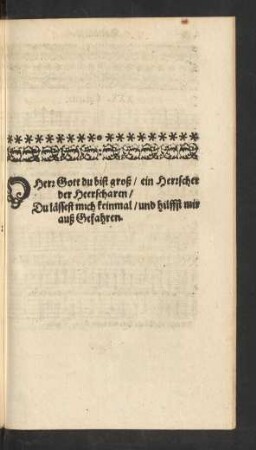 O Herꝛ Gott du bist groß / ein Herꝛscher
der Heerscharen /
Du lässest mich keinmal / und hilffst mir
auß Gefahren.